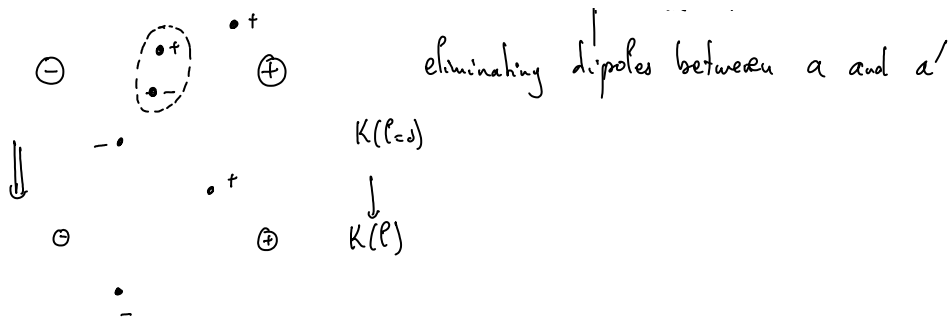 +
⊖ + ⊕ eliminating dipoles between a and a'
-
- K(ℓ=0)
+
⊖ ⊕ K(ℓ)
-